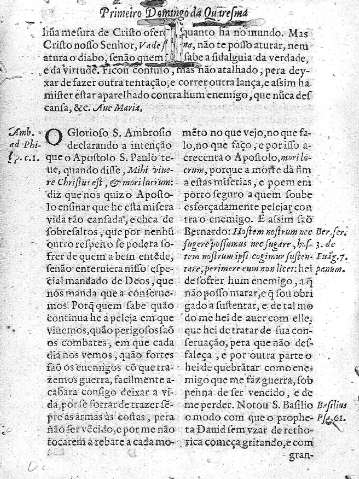 Primeiro Domingo da Quaresma
lisa mesura de Cristo ofer quanto ha no mundo. Mas
Cristo nosso Senhor, Vade na, não te posso aturar, nem
atura o diabo, senão quem sabe a fidalguia da verdade,
e da virtude. Ficou confuso, mas não atalhado, pera dey-
xar de fazer outra tentação, e correr outra lança, e assim ha
mister estar aparelhado contra hum enemigo, que nūca des-
cansa, &c. Aue Maria.
Amb.
ad Phi-
lip. c. 1.
O Glorioso S. Ambrosio
declarando a intenção
que o Apostolo S. Paulo te-
ue, quando disse, Mihi viue-
re Christus est, & mori lucrum:
diz que nos quiz o Aposto-
lo ensinar que he esta misera
vida tão cansada, e chea de
sobresaltos, que por nenhū
outro respeito se podera so-
frer de quem a bem entēde,
senão enteruiera nisso espe-
cial mandado de Deos, que
nos manda que a conserue-
mos. Porq̃ quem sabe quão
continua he a peleja em que
viuemos, quão perigosos saõ
os combates, em que cada
dia nos vemos, quão fortes
saõ os enemigos cõ que tra-
zemos guerra, facilmente a-
cabara consigo deixar a vi-
da, por se forrar de trazer sē-
pre ás armas ás costas, pera
não ser vēcido, e por me não
tocarem a rebate a cada mo-
mēto no que vejo, no que fa-
lo, no que faço, e por isso a-
crecenta o Apostolo, mori lu-
crum, porque a morte dà fim
a estas miserias, e poem em
porto seguro a quem soube
esforçadamente pelejar con-
tra o enemigo. E assim S.
Bernardo: Hostem nostrum nec
fugere possumus nec fugare, hos-
tem nostrum ipsi cogimur susten-
tare, perimere eum non licet: hei
de sofrer hum enemigo, a q̃
não posso matar, e q̃ sou obri
gado a sustentar, e de tal mo
do me hei de auer com elle,
que hei de tratar de sua con-
seruação, pera que não des-
faleça, e por outra parte o
hei de quebrãtar como ene-
migo que me faz guerra, sob
penna de ser vencido, e de
me perder. Notou S. Basilio
o modo com que o prophe-
ta Dauid sem vzar de retho-
rica começa gritando, e com
gran-
Ber. ser.
3. de
7.
panum.
Basilius
Psal. 61.